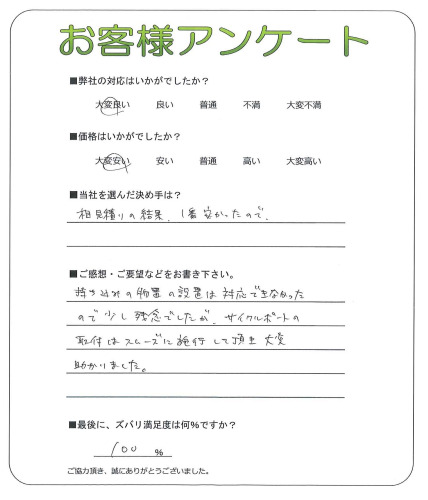 お客様アンケート
■弊社の対応はいかがでしたか？
大変良い 良い 普通 不満 大変不満
■価格はいかがでしたか？
大変安い 安い 普通 高い 大変高い
■当社を選んだ決め手は？
相見積りの結果、1番安かったので、
■ご感想・ご要望などをお書き下さい。
持ち込みの物置の設置は対応できなかった
ので少し残念でしたが、サイクルポートの
取付はスムーズに施行して頂き大変
助かりました。
■最後に、ズバリ満足度は何％ですか？
100 ％
ご協力頂き、誠にありがとうございました。